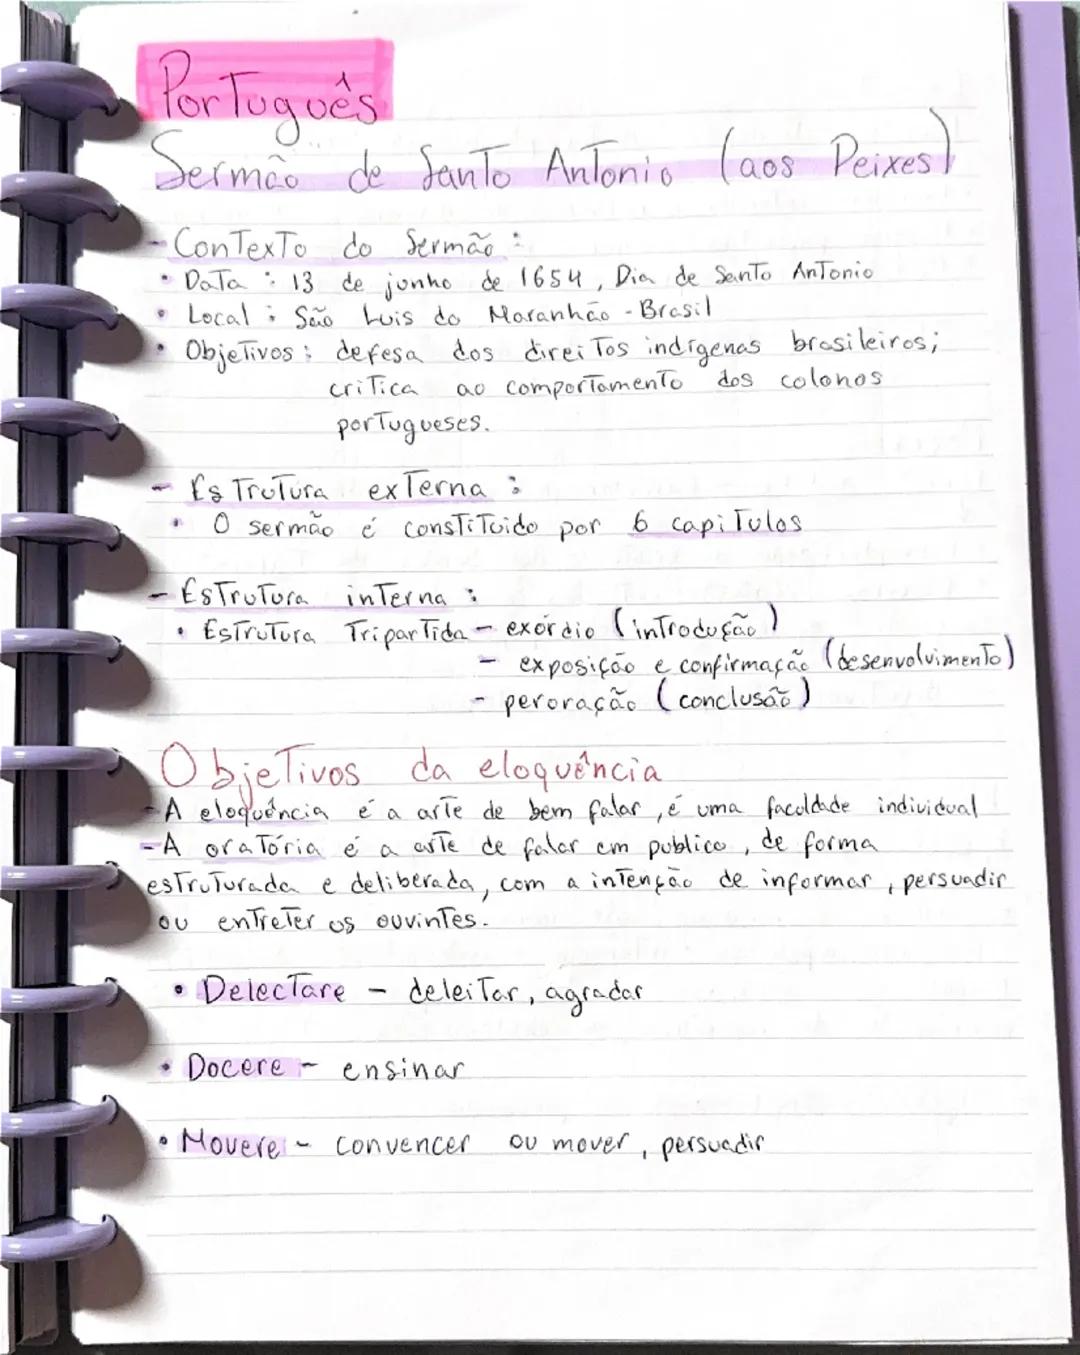 Português
Sermão de Santo Antonio (aos Peixes)
- Contexto do Sermão:
• Data: 13 de junho de 1654, Dia de Santo Antonio
• Local: São Luis do Maranhão - Brasil
• Objetivos: defesa dos direitos indígenas brasileiros;
critica ao comportamento dos colonos
portugueses.
- Estrutura externa:
• O sermão é constituido por 6 capitulos
- Estrutura interna:
• Estrutura Tripartida - exórdio (introdução)
- exposição e confirmação (desenvolvimento)
- peroração (conclusão)
Objetivos da eloquência
- A eloquência é a arte de bem falar, é uma faculdade individual
- A oratória é a arte de falar em publico, de forma
estruturada e deliberada, com a intenção de informar, persuadir
ou entreter os ouvintes.
• Delectare - deleitar, agradar
• Docere - ensinar
• Movere - convencer ou mover, persuadir